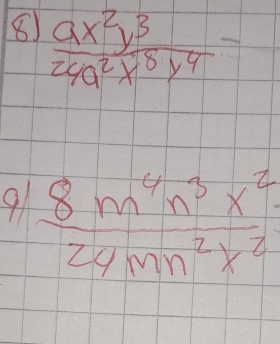 8) ax²y³
24a²x⁸y⁴
9) 8m⁴n³x²
24mn²x²